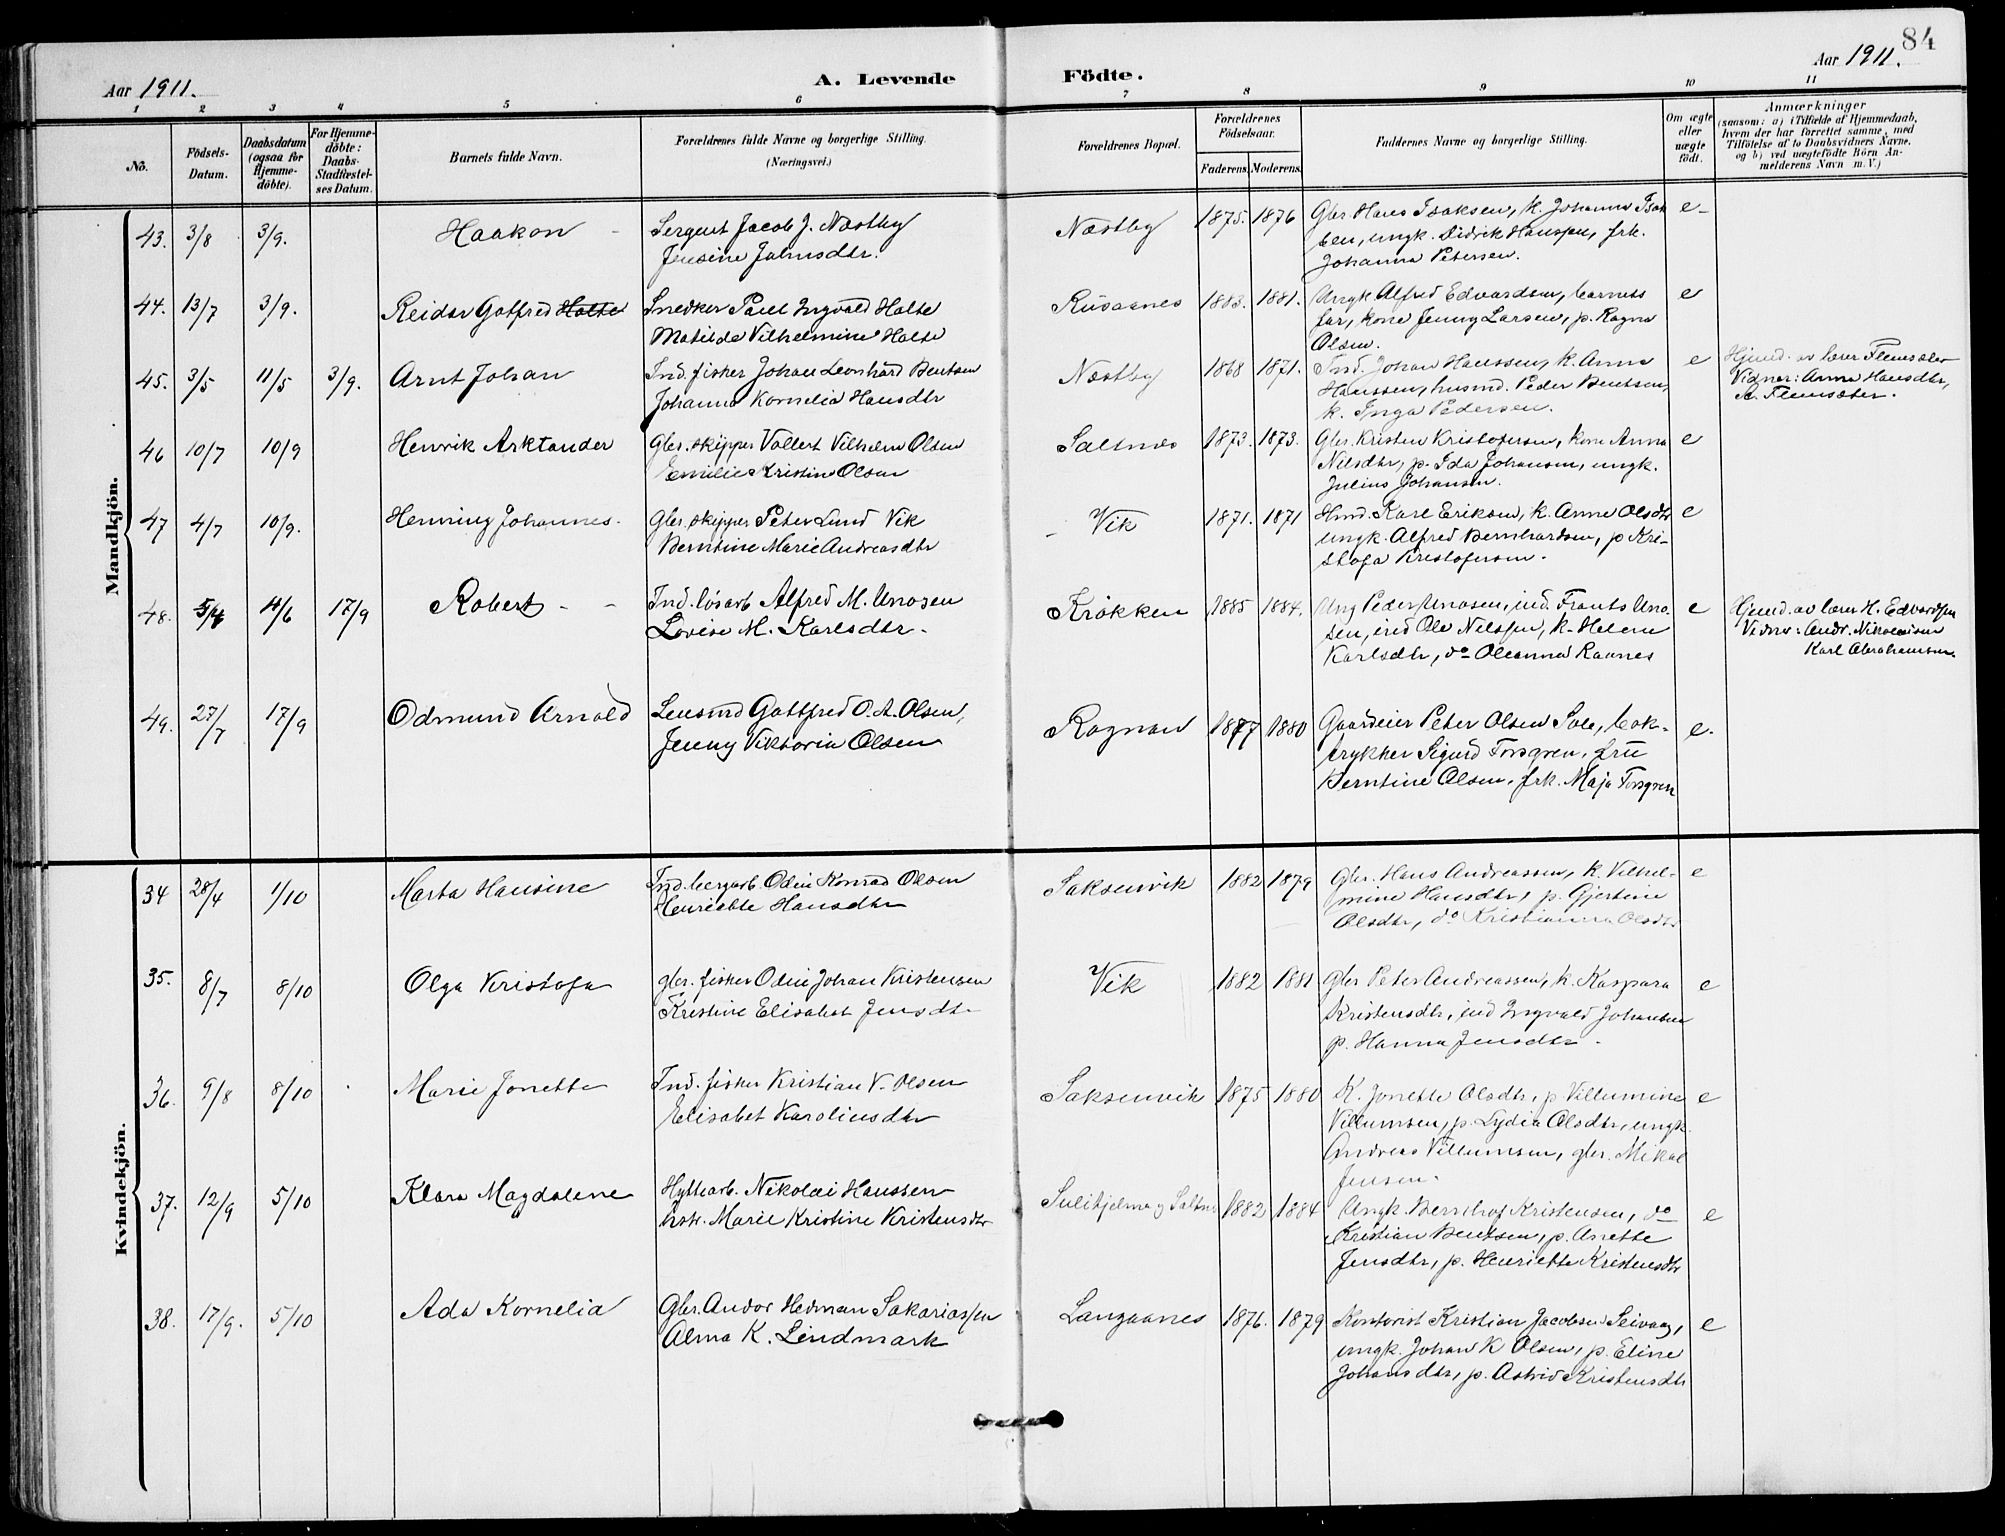 84
Aar 1911.
A. Levende Födte.
Aar 1911.
1 2 3 4 5 6 7 8 9 10 11
No.
Födsels-Datum.
Daabsdatum (ogsaa for Hjemme-döbte).
For Hjemme-döbte: Daabs-Stadfæstel-ses Datum.
Barnets fulde Navn.
Forældrenes fulde Navne og borgerlige Stilling. (Næringsvei.)
Forældrenes Bopæl.
Forældrenes Födselsaar.
Faderens. Moderens.
Faddernes Navne og borgerlige Stilling.
Om ægte eller uægte födt.
Anmærkninger
(saasom: a) i Tilfælde af Hjemmedaab,
hvem der har forrettet samme, med
Tilföielse af to Daabsvidners Navne,
og b) ved uægtefödte Börn An-
melderens Navn m. V.)
Mandkjön.
43. 3/8 3/9. Haakon - Sergent Jacob J. Næstby Næstby 1875. 1876 Gbr. Hans Isaksen, k. Johanna Isak e-
Jensine Johnsdtr. sen, ungk. Didrik Hanssen, frk.
Johanna Petersen.
44. 13/7 3/9. Reidar Gotfred Holte Snedker Paul Ingvald Holte Rusaanes 1883. 1881. Ungk. Alfred Edvardsen, barnets e
Matilde Vilhelmine Holte far, kone Jenny Larsen, p. Ragna
Olsen.
45. 3/5 11/5 3/9. Arnt Johan Ind. fisker Johan Leonhard Bentsen Næstby 1868 1871. Ind. Johan Hanssen, k. Anna e Hjemd. av lærer Flemsæter
Johanna Kornelia Hansdtr Hanssen, husmd. Peder Bentsen, Vidner: Anna Hansdtr,
k. Inga Pedersen. A. Flemsæter.
46 10/7 10/9 Henrik Arktander Gbr. skipper Vollert Vilhelm Olsen Saltnes 1873. 1873. Gbr. Kristen Kristofersen, kone Anna e
Emilie Kristine Olsen Nilsdtr, p. Ida Johansen, ungk.
Julius Johansen.
47 4/7 10/9. Henning Johannes. Gbr. skipper Peter Lund Vik - Vik 1871. 1871 Hmd. Karl Eriksen, k. Anne Olsdtr e
Berntine Marie Andreasdtr ungk. Alfred Bernhardsen, p Kri-
stofa Kristofersen.
48. 5/4 4/6 17/9 Robert - - Ind. løsarb Alfred M. Unosen Krokken 1885 1884. Ung Peder Unosen, ind. Frants Uno- e Hjemd. av lærer H. Edvardsen
Lovise M. Karlsdtr. sen, ind Ole Nilssen, k. Helene Vidner: Andr. Nikolaisen
Karlsdtr, do Oleanna Raanes Karl Abrahamsen.
49. 27/7 17/9 Odmund Arnold Lensmd Gottfred O. A. Olsen, Rognan 1877 1880 Gaardeier Peter Olsen Sole, bok- e.
Jenny Viktoria Olsen trykker Sigurd Forsgren, fru
Berntine Olsen, frk. Maja Forsgren
Kvindekjön.
34 28/4 1/10 Marta Hansine Ind. bergarb. Odin Konrad Olsen Saksenvik 1882 1879 Gbr. Hans Andreassen, k. Vilhel- e
Henriette Hansdtr mine Hansdtr, p. Gjertine
Olsdtr, do Kristianna Olsdtr
35. 8/7 8/10 Olga Kristofa gbr. fisker Odin Johan Kristensen Vik 1882 1881 gbr Peter Andreassen, k. Kaspara e
Kristine Elisabet Jensdtr Kristensdtr, ind Ingvald Johansen
p. Hanna Jensdtr.
36. 9/8 8/10 Marie Jonette Ind. fisker Kristian V. Olsen Saksenvik 1875 1880 K. Jonette Olsdtr, p Villumine e
Elisabet Karoliusdtr Villumsen, p. Lydia Olsdtr, ungk.
Andreas Villumsen, gbr. Mikal
Jensen.
37. 12/9 5/10 Klara Magdalene Hyttearb. Nikolai Hanssen Sulitjelma og Saltnes 1882 1884 Ungk. Bernhof Kristensen, do e
hstr. Marie Kristine Kristensdtr Kristian Bentsen, p. Anette
Jensdtr, p. Henriette Kristensdtr
38. 17/9. 5/10 Ada Kornelia Gbr. Andor Hedman Sakariassen Langaanes 1876. 1879 Kontorist Kristian Jacobsen Seivaag, e
Alma K. Lindmark ungk. Johan K Olsen, p. Eline
Johansdtr, p. Astrid Kristensdtr